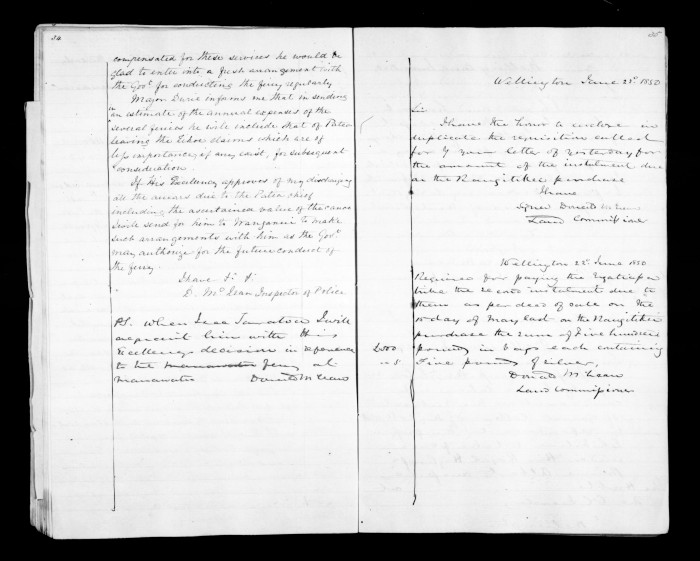 34
compensated for these services he would be
glad to enter into a fresh arrangement with
the Govt. for conducting the ferry regularly
Major Durie informs me that in sending
in an estimate of the annual expenses of the
several ferries he will include that of Patea
leaving the other claims which are of
less importance, if any exist, for subsequent
consideration.
If His Excellency approves of my discharging
all the arrears due to the Patea chief
including the ascertained value of the canoe
I will send for him to Wanganui to make
such arrangements with him as the Govt.
may authorize for the future conduct of
the ferry.
I have &c &c
D. McLean Inspector of Police
P.S. When I see I will
acquaint him with His
Excellency's decision in reference
to the manawatu ferry at
manawatu Donald McLean
35
Wellington June 22d 1850
Sir
I have the honor to enclose in
duplicate the requisition called
for by your letter of yesterday for
the amount of the instalment due
on the Rangitikei purchase
I have
Signed Donald McLean
Land Commissioner
Wellington 22d June 1850
Required for paying the Ngatiapa
tribe the second instalment due to
them as per deed of sale on the
15 day of May last on the Rangitikei
purchase the sum of Five hundred
£500 pounds in bags each containing
" " 5 Five pounds of silver.
Donald McLean
Land Commissioner